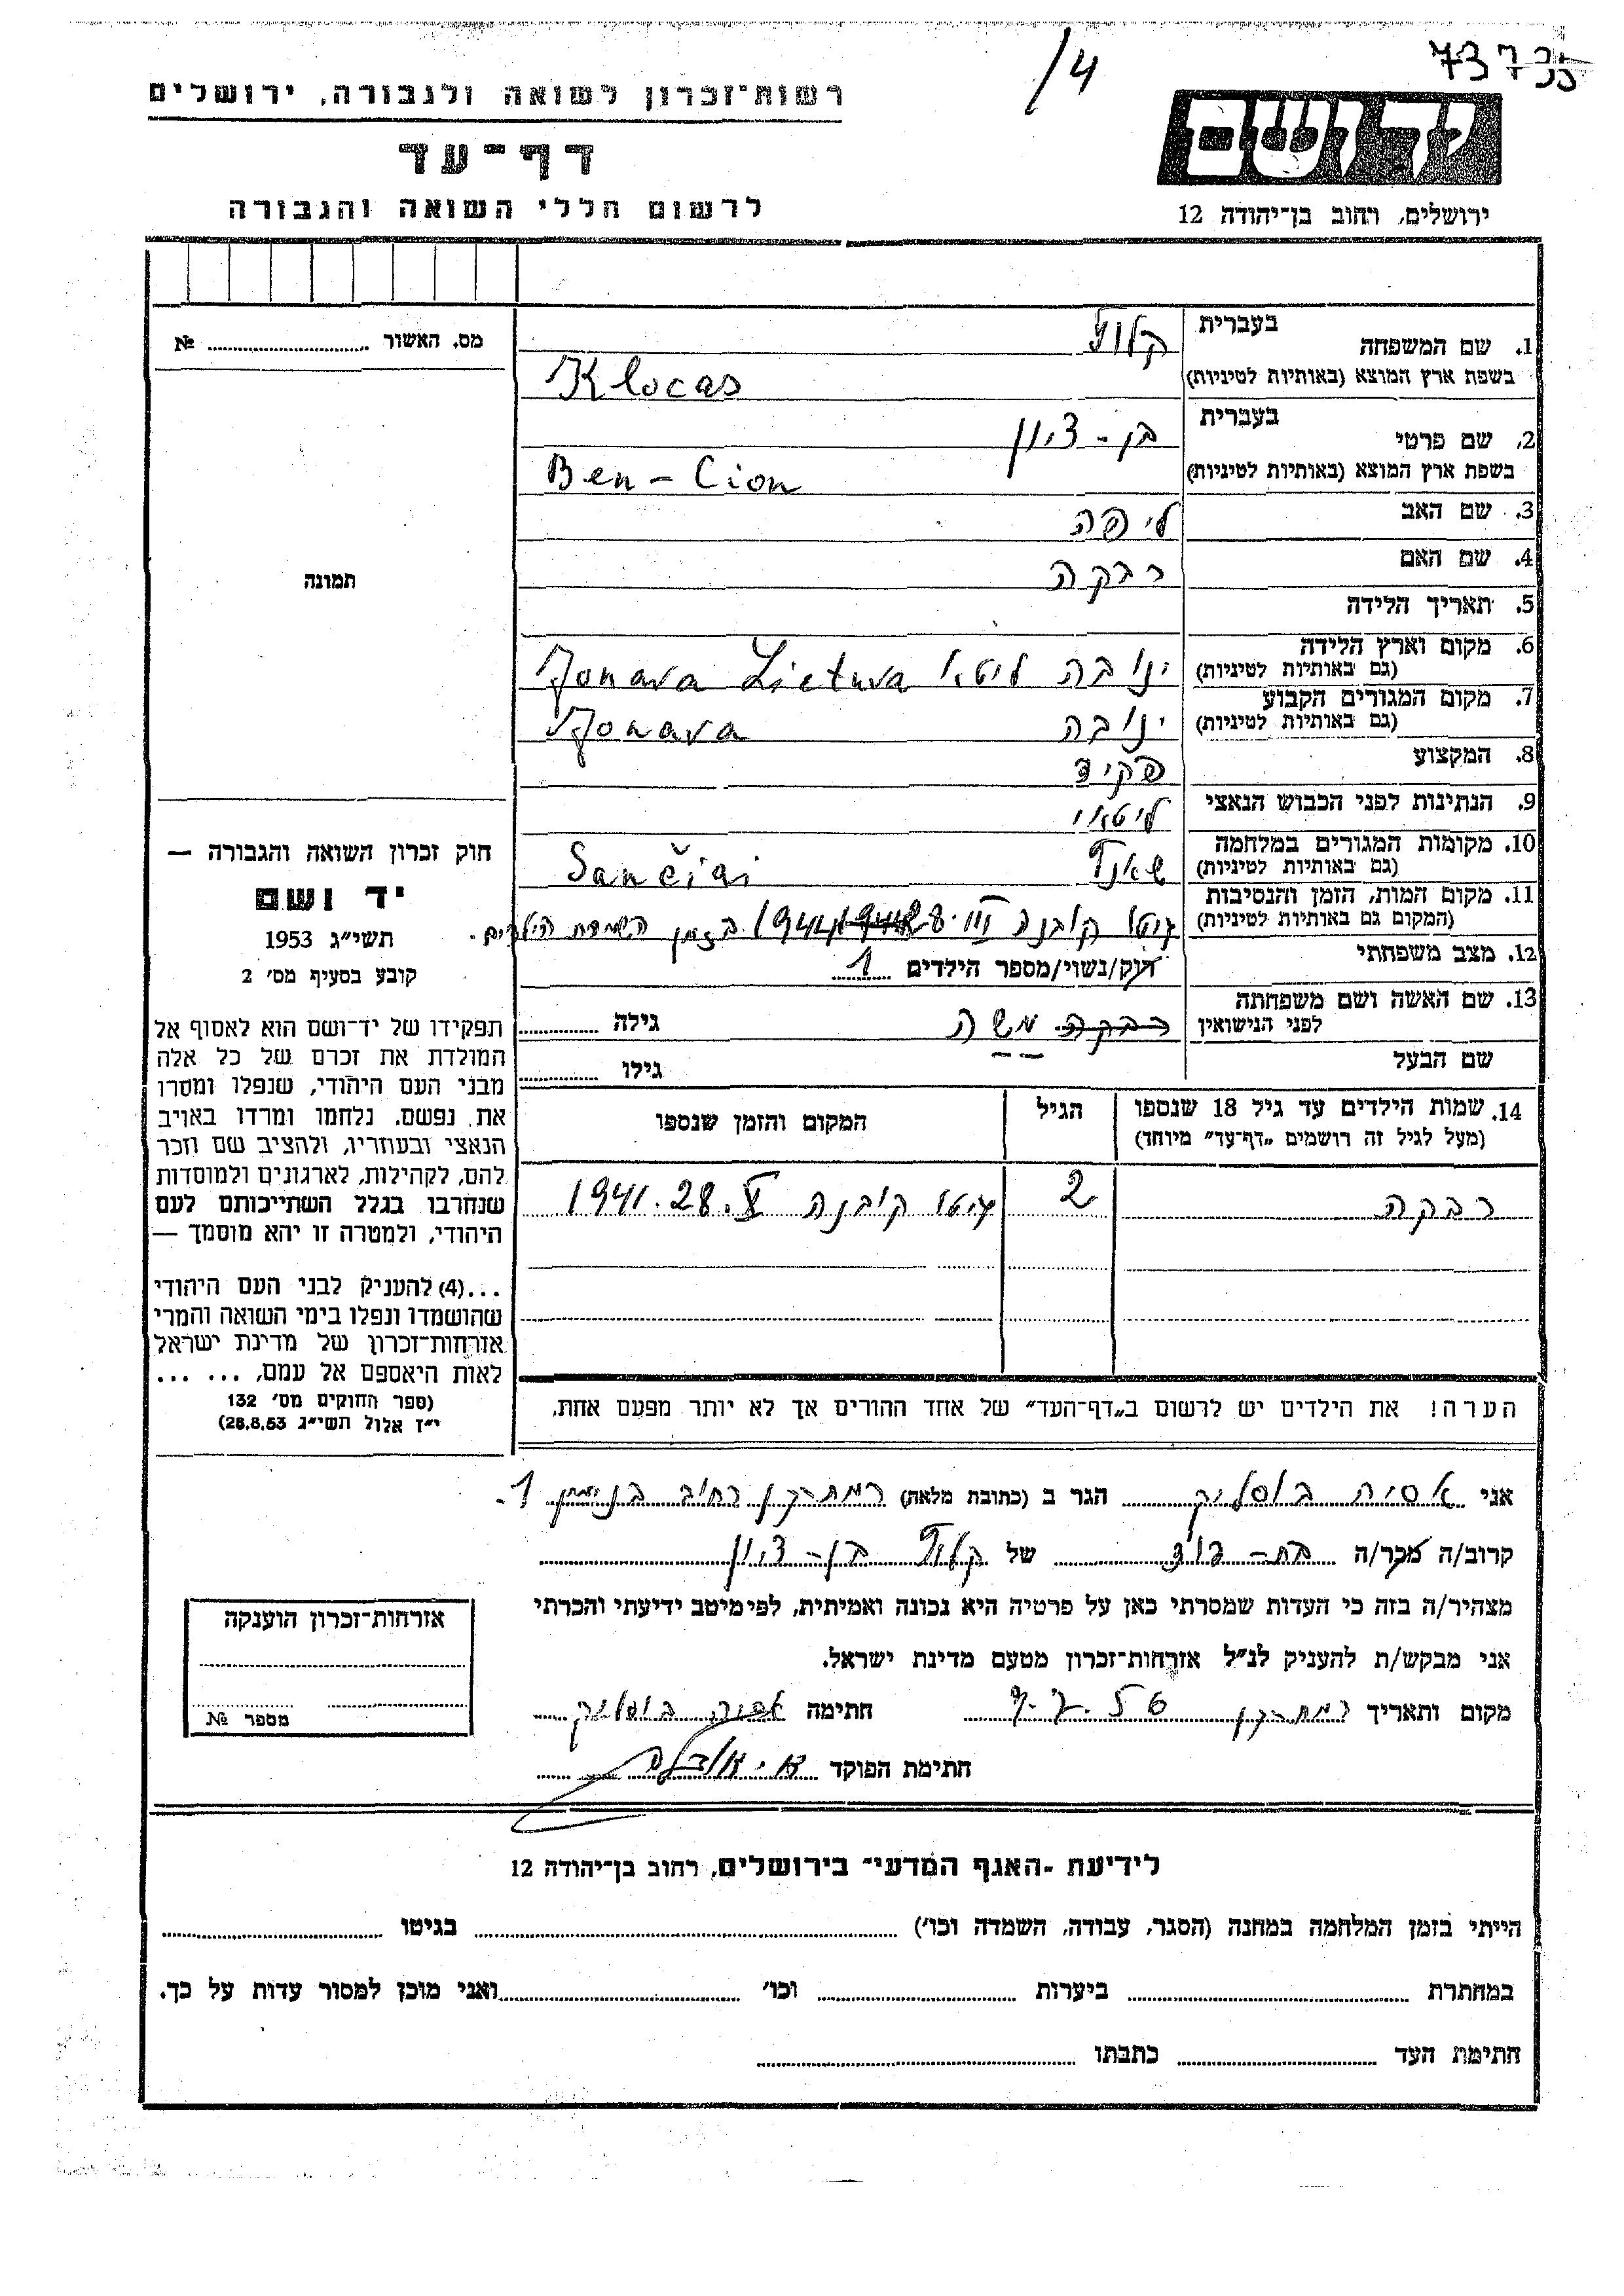 73735
/4
יד ושם
ירושלים, רחוב בן־יהודה 12
רשות־זכרון לשואה ולגבורה, ירושלים
דף־עד
לרשום חללי השואה והגבורה
מס. האשור № ........
תמונה
חוק זכרון השואה והגבורה —
יד ושם
תשי״ג 1953
קובע בסעיף מס׳ 2
תפקידו של יד־ושם הוא לאסוף אל
המולדת את זכרם של כל אלה
מבני העם היהודי, שנפלו ומסרו
את נפשם, נלחמו ומרדו באויב
הנאצי ובעוזריו, ולהציב שם וזכר
להם, לקהילות, לארגונים ולמוסדות
שנחרבו בגלל השתייכותם לעם
היהודי, ולמטרה זו יהא מוסמך —
...(4) להעניק לבני העם היהודי
שהושמדו ונפלו בימי השואה והמרי
אזרחות־זכרון של מדינת ישראל
לאות היאספם אל עמם, ... ...
(ספר החוקים מס׳ 132
י״ז אלול תשי״ג 28.8.53)
בעברית
1. שם המשפחה קלוץ
בשפת ארץ המוצא (באותיות לטיניות) Klocas
בעברית
2. שם פרטי בן-ציון
בשפת ארץ המוצא (באותיות לטיניות) Ben-Cion
3. שם האב ליפה
4. שם האם רבקה
5. תאריך הלידה
6. מקום וארץ הלידה
(גם באותיות לטיניות) ינובה ליטא Jonava Lietuva
7. מקום המגורים הקבוע
(גם באותיות לטיניות) ינובה Jonava
8. המקצוע פקיד
9. הנתינות לפני הכבוש הנאצי ליטאי
10. מקומות המגורים במלחמה
(גם באותיות לטיניות) שאנץ Sančiai
11. מקום המות, הזמן והנסיבות
(המקום גם באותיות לטיניות) גיטו קובנה בזמן השמדת הילדים.
12. מצב משפחתי רוק/נשוי/מספר הילדים 1
13. שם האשה ושם משפחתה
לפני הנישואין רבקה משה גילה
שם הבעל גילו
14. שמות הילדים עד גיל 18 שנספו
(מעל לגיל זה רושמים „דף־עד״ מיוחד)
הגיל
המקום והזמן שנספו
רבקה 2 גיטו קובנה 28.X.1941
הערה! את הילדים יש לרשום ב„דף־העד״ של אחד ההורים אך לא יותר מפעם אחת.
אני אסיה בוסליק הגר ב (כתובת מלאה) רמת-גן רחוב בנימין 1.
קרוב/ה מכר/ה בת-דוד של קלוץ בן-ציון
מצהיר/ה בזה כי העדות שמסרתי כאן על פרטיה היא נכונה ואמיתית, לפי מיטב ידיעתי והכרתי
אני מבקש/ת להעניק לנ״ל אזרחות־זכרון מטעם מדינת ישראל.
מקום ותאריך רמת-גן חתימה אסיה בוסליק
חתימת הפוקד
אזרחות־זכרון הוענקה
מספר №
לידיעת ־האגף המדעי־ בירושלים, רחוב בן־יהודה 12
הייתי בזמן המלחמה במחנה (הסגר, עבודה, השמדה וכו׳) ........ בגיטו ........
במחתרת ........ ביערות ........ וכו׳ ........ ואני מוכן למסור עדות על כך.
חתימת העד ........ כתבתו ........